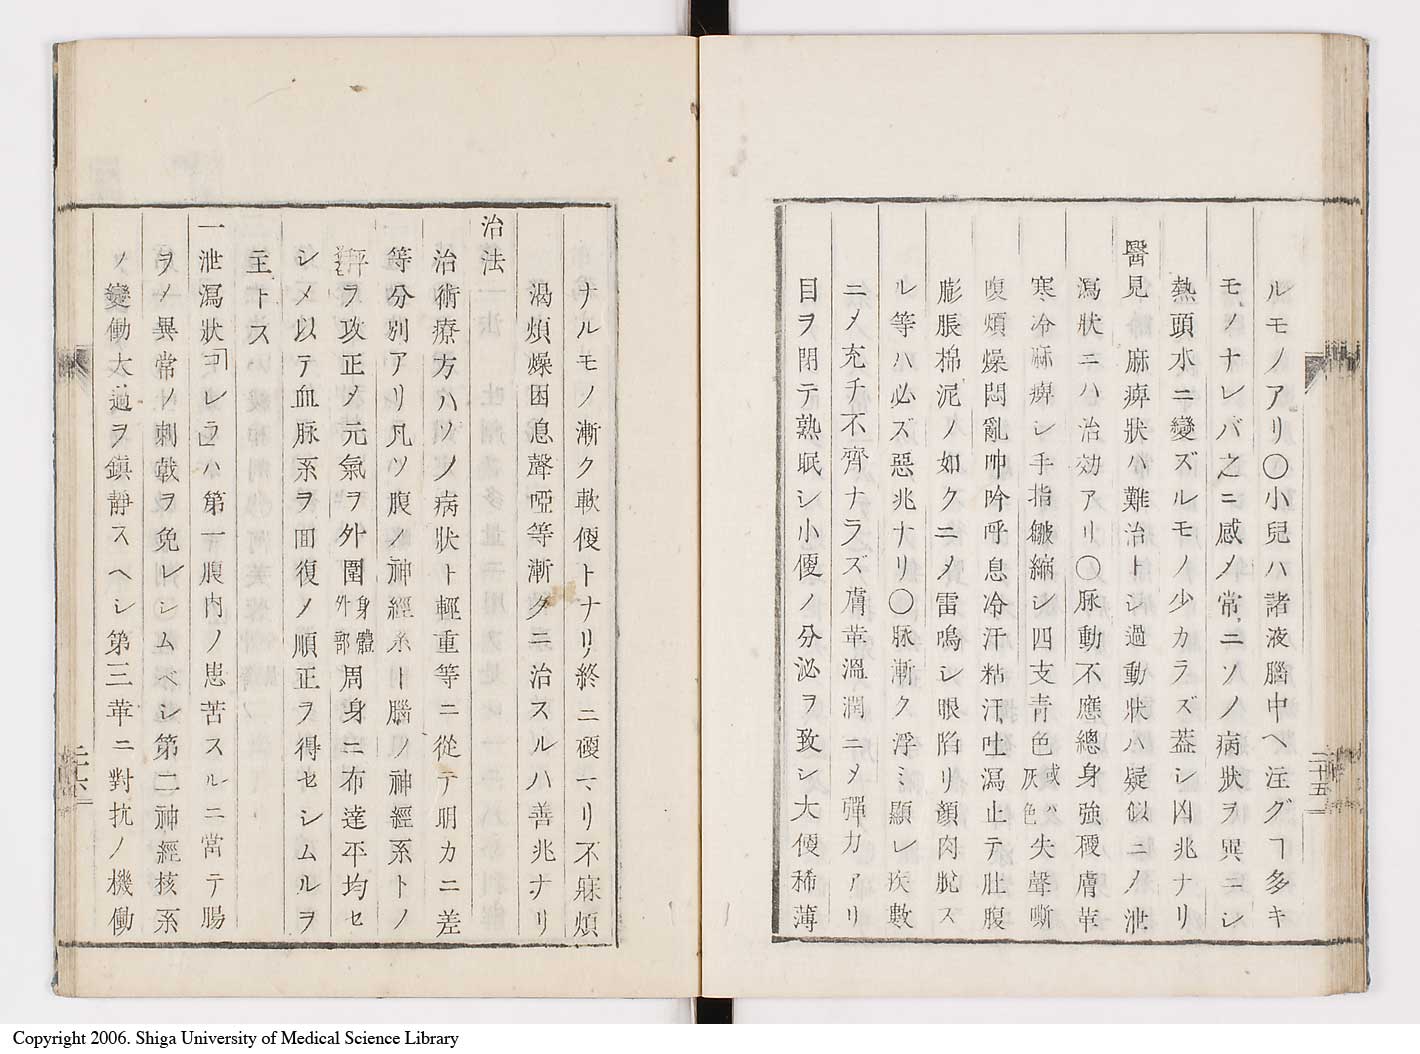 ルモノアリ〇小兒ハ諸液腦中ヘ注グヿ多キ
モノナレバ之ニ感〆常ニソノ病狀ヲ異ニシ
熱頭水ニ變ズルモノ少カラズ蓋シ凶兆ナリ
醫見 麻痺狀ハ難治トシ過動狀ハ疑似ニノ泄
瀉狀ニハ治効アリ〇脉動不應總身強硬膚革
寒冷麻痺シ手指皺縮シ四支青色或ハ灰色失聲嘶
嗄煩燥悶亂呻吟呼息冷汗粘汗吐瀉止テ肚腹
膨脹棉泥ノ如クニ〆雷鳴シ眼陷リ顏肉脫ス
ル等ハ必ズ惡兆ナリ〇脉漸ク浮ミ顯レ疾數
ニ〆充チ不齊ナラズ膚革溫潤ニ〆彈力アリ
目ヲ閉テ熟眠シ小便ノ分泌ヲ致シ大便稀薄
二十五
ナルモノ漸ク軟便トナリ終ニ硬マリ不寐煩
渴煩燥困息聲啞等漸クニ治スルハ善兆ナリ
治法
治術療方ハソノ病狀ト輕重等ニ從テ明カニ差
等分別アリ凡ソ腹ノ神經系ト腦ノ神經系トノ
平對ヲ攻正〆元氣ヲ外圍身體外部周身ニ布達平均セ
シメ以テ血脉系ヲ囬復〆順正ヲ得セシムルヲ
主トス
一泄瀉狀「コレラ」ハ第一腹内ノ患苦スルニ當テ腸
ヲ〆異常ノ刺戟ヲ免レシムベシ第二神經核系
ノ變働大過ヲ鎮靜スヘシ第三華ニ對抗ノ機働
二十六
Copyright 2006. Shiga University of Medical Science Library